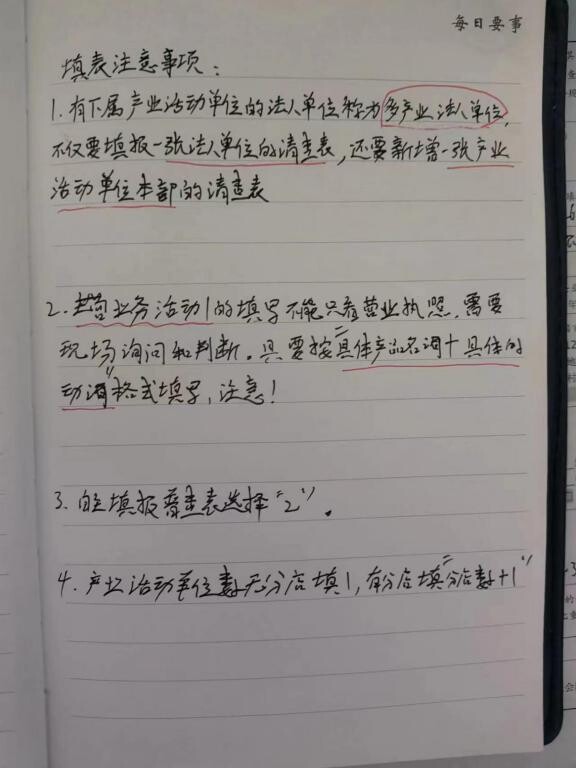 每日要事
填表注意事项：
1. 有下属产业活动单位的法人单位称为多产业法人单位，
不仅要填报一张法人单位的清查表，还要新增一张产业
活动单位本部的清查表
2. 主营业务活动1的填写不能只看营业执照，需要
现场询问和判断。且要按“具体产品名词+具体的
动词”格式填写，注意！
3. 自主填报普查表选择“2”。
4. 产业活动单位数无分店填1，有分店填“分店数+1”